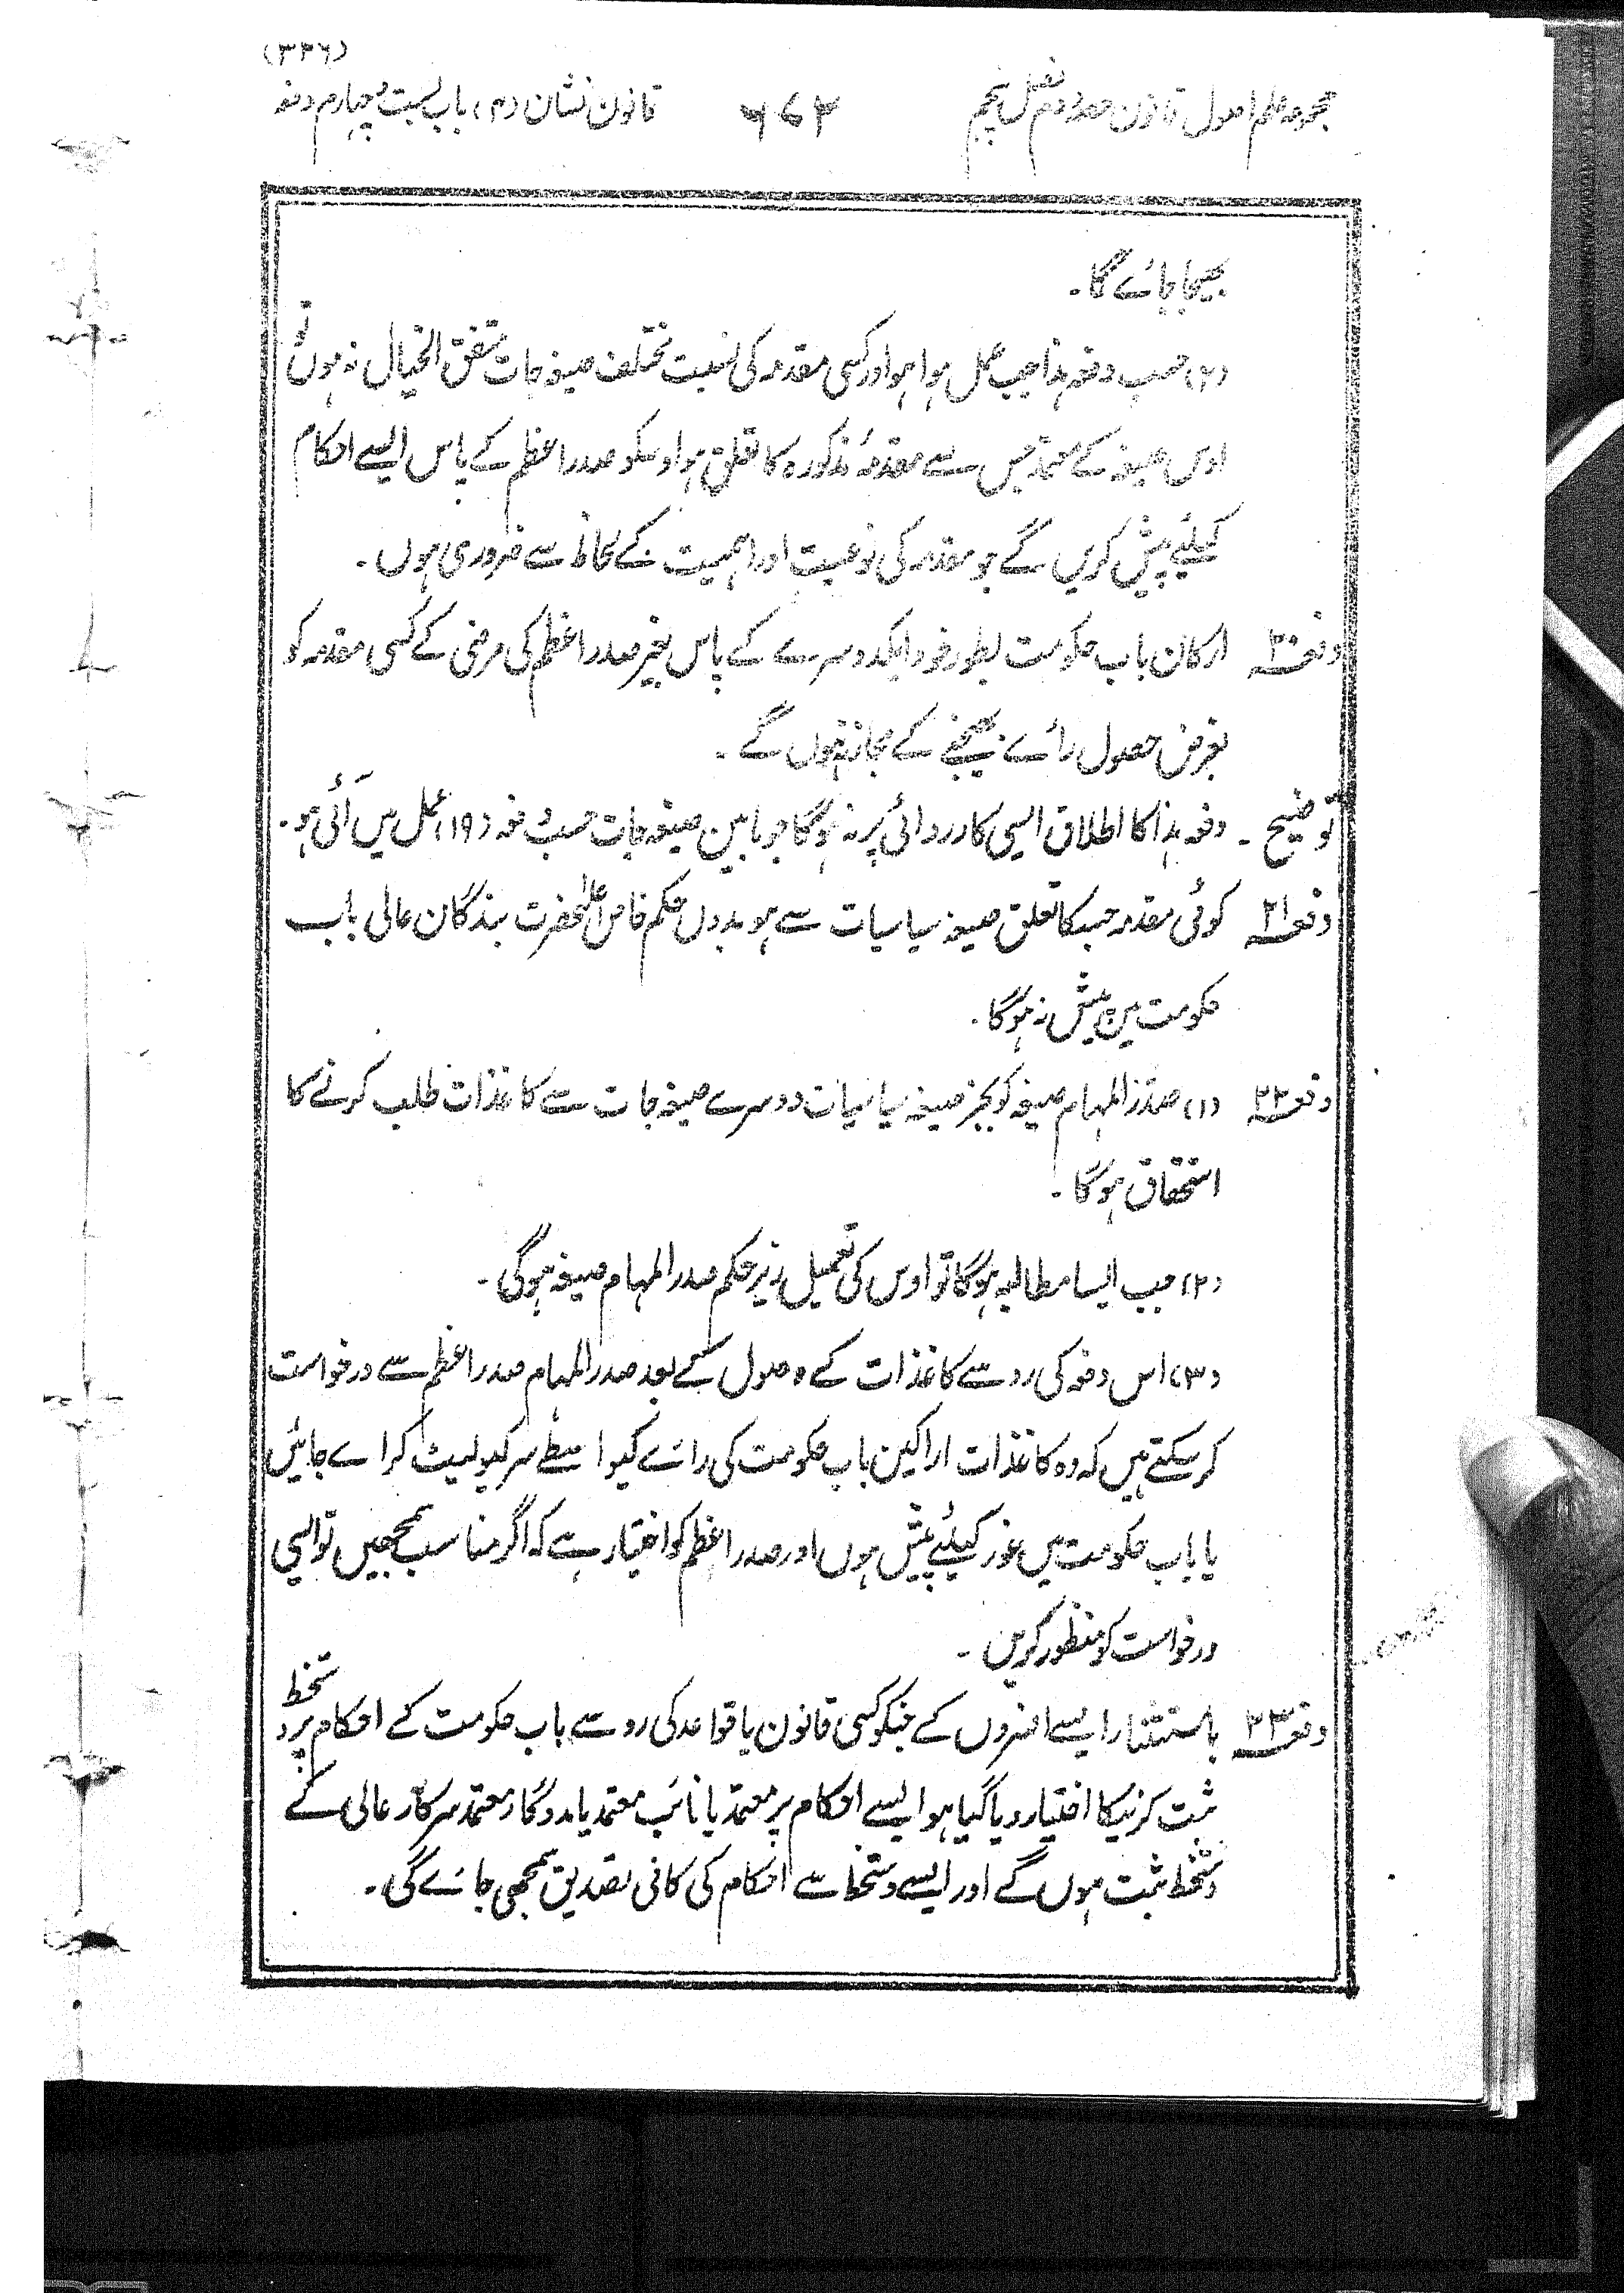 (۳۳۶)
مجموعہ علم اصول قانون حصہ دوم فصل پنجم ۷۶۴ قانون نشان (م) باب بست و چہارم دفعہ
بھیجا جائے گا۔
(۲) حسب دفعہ ہذا جب عمل ہوا ہو اور کسی مقدمہ کی نسبت مختلف صیغہ جات متفق الخیال نہ ہوں تو
اوس صیغہ کے معتمد جس سے مقدمۂ مذکورہ کا تعلق ہو اوسکو صدر اعظم کے پاس ایسے احکام
کیلئے پیش کریں گے جو مقدمہ کی نوعیت اور اہمیت کے لحاظ سے ضروری ہوں۔
دفعہ ۲۰ ارکان باب حکومت بطور خود ایکدوسرے کے پاس بغیر صدر اعظم کی مرضی کے کسی مقدمہ کو
بغرض حصول رائے بھیجنے کے مجاز نہ ہوں گے۔
توضیح۔ دفعہ ہذا کا اطلاق ایسی کارروائی پر نہ ہوگا جو مابین صیغہ جات حسب دفعہ (۱۹) عمل میں آئی ہو۔
دفعہ ۲۱ کوئی مقدمہ جسکا تعلق صیغہ سیاسیات سے ہو بدوں حکم خاص اعلٰحضرت بندگان عالی باب
حکومت میں پیش نہ ہوگا۔
دفعہ ۲۲ (۱) صدر المہام صیغہ کو بجز صیغہ سیاسیات دوسرے صیغہ جات سے کاغذات طلب کرنے کا
استحقاق ہوگا۔
(۲) جب ایسا مطالبہ ہوگا تو اوس کی تعمیل زیر حکم صدر المہام صیغہ ہوگی۔
(۳) اس دفعہ کی رو سے کاغذات کے وصول کے بعد صدر المہام صدر اعظم سے درخواست
کر سکتے ہیں کہ وہ کاغذات اراکین باب حکومت کی رائے کیواسطے سرکیولیٹ کرائے جائیں
یا باب حکومت میں غور کیلئے پیش ہوں اور صدر اعظم کو اختیار ہے کہ اگر مناسب سمجھیں تو ایسی
درخواست کو منظور کریں۔
دفعہ ۲۳ باستثناء ایسے افسروں کے جنکو کسی قانون یا قواعد کی رو سے باب حکومت کے احکام پر دستخط
ثبت کرنیکا اختیار دیا گیا ہو ایسے احکام پر معتمد یا نائب معتمد یا مددگار معتمد سرکار عالی کے
دستخط ثبت ہوں گے اور ایسے دستخط سے احکام کی کافی تصدیق سمجھی جائے گی۔